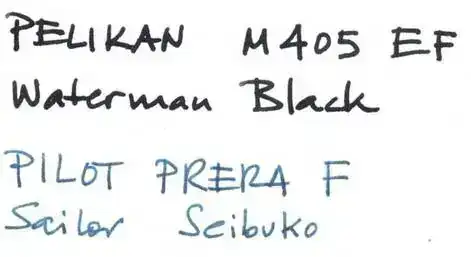 PELIKAN M405 EF
Waterman Black
PILOT PRERA F
Sailor Seibuko